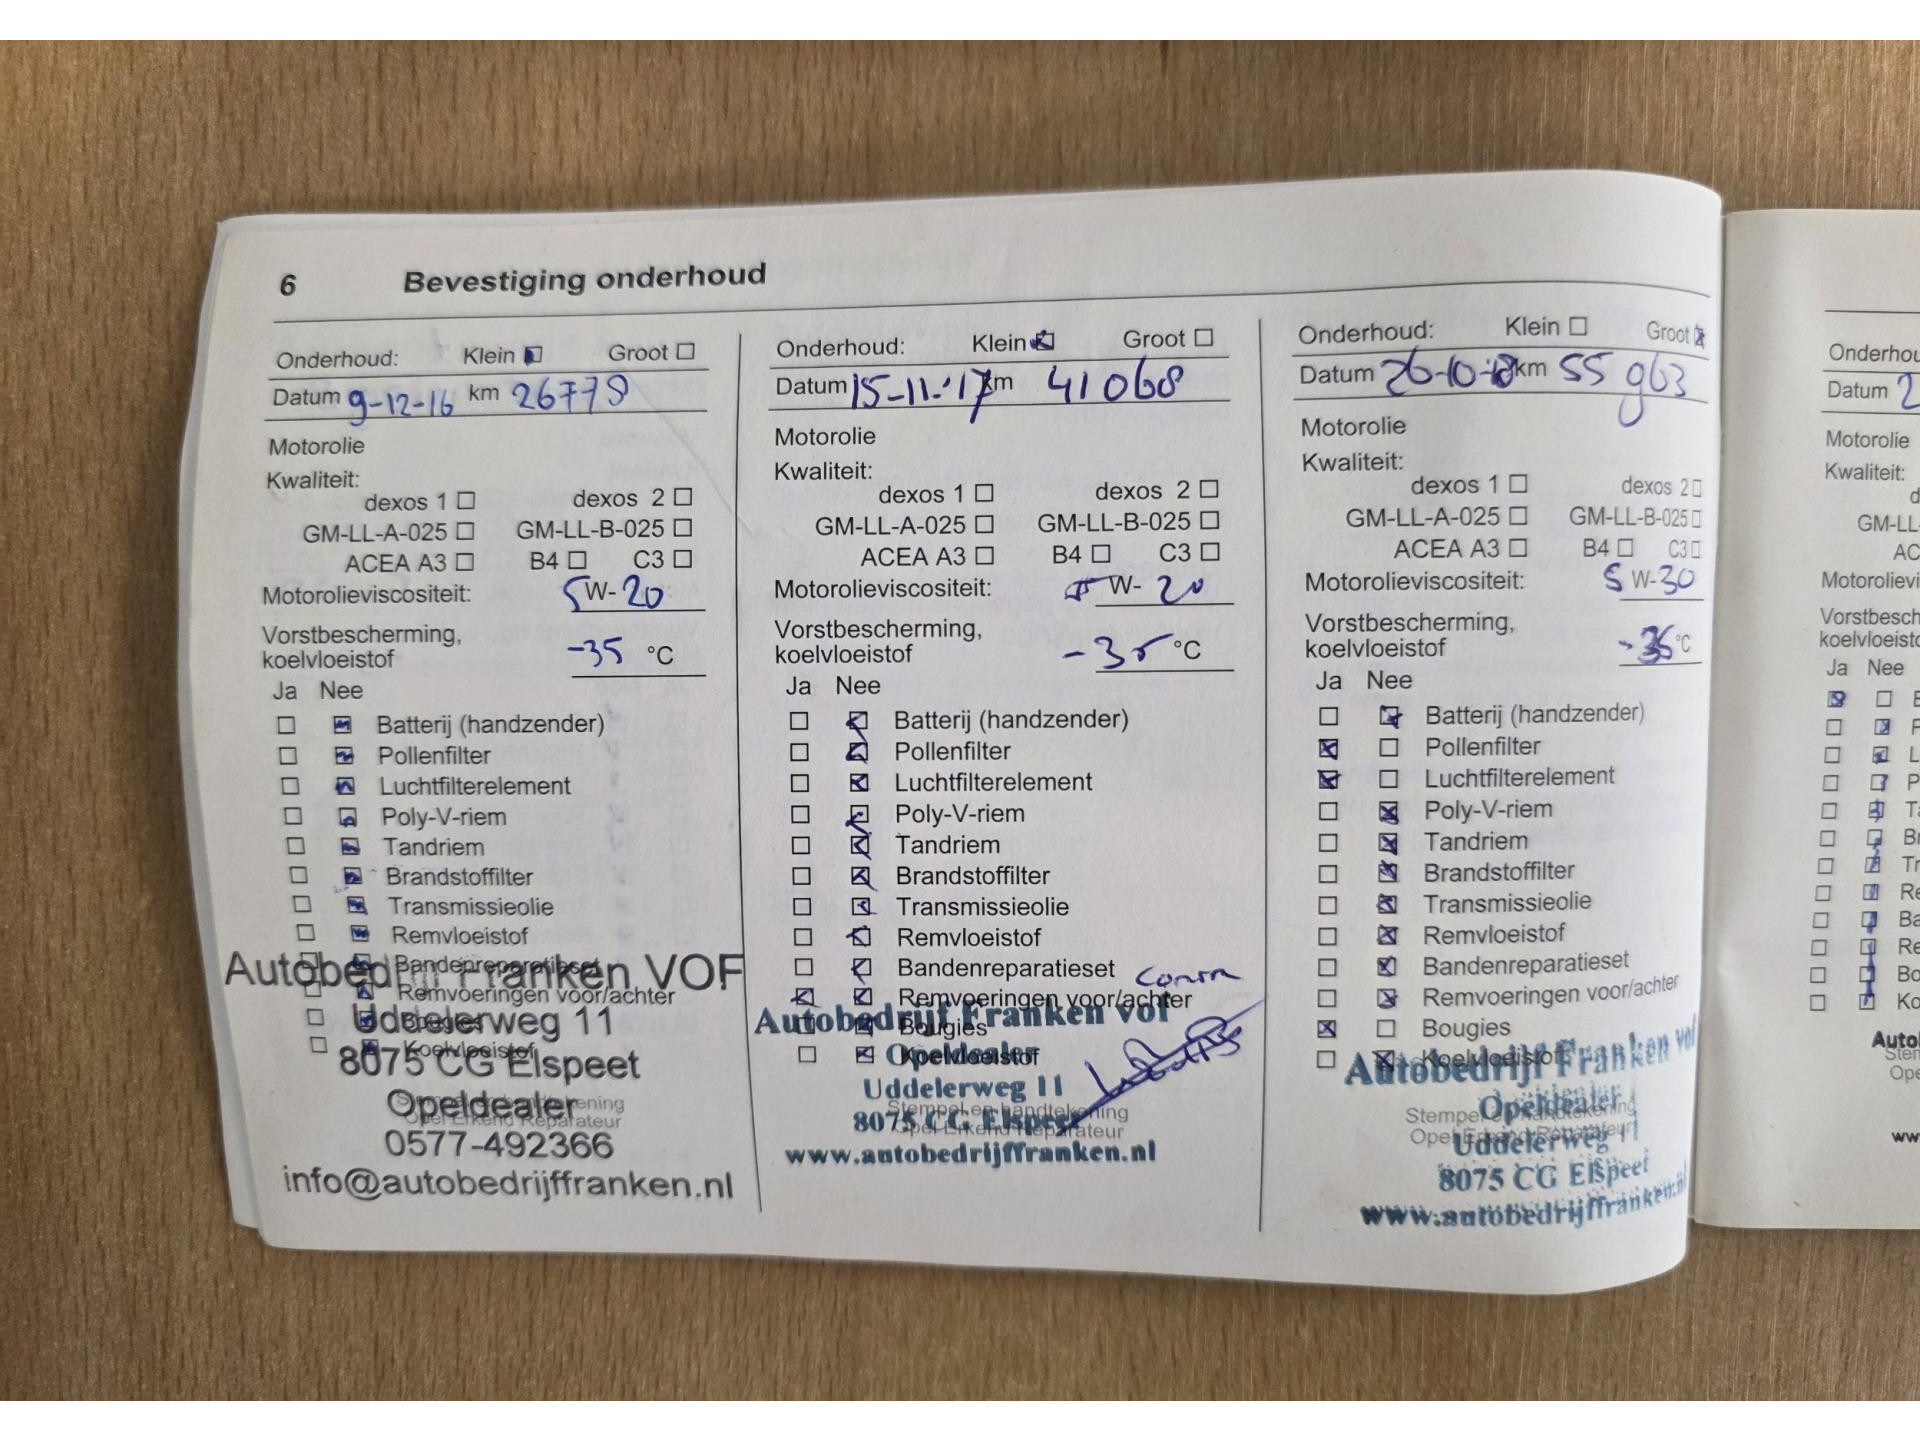 6 Bevestiging onderhoud
Onderhoud: Klein Groot
Datum 9-12-16 km 26778
Motorolie
Kwaliteit:
dexos 1 dexos 2
GM-LL-A-025 GM-LL-B-025
ACEA A3 B4 C3
Motorolieviscositeit: 5W-20
Vorstbescherming,
koelvloeistof -35 °C
Ja Nee
Batterij (handzender)
Pollenfilter
Luchtfilterelement
Poly-V-riem
Tandriem
Brandstoffilter
Transmissieolie
Remvloeistof
Bandenreparatieset
Autobedrijf Franken VOF
Remvoeringen voor/achter
Bougies
Uddelerweg 11
Koelvloeistof
8075 CG Elspeet
Opeldealer
Stempel en handtekening
Opel Erkend Reparateur
0577-492366
info@autobedrijffranken.nl
Onderhoud: Klein Groot
Datum 15-11-'17 km 41068
Motorolie
Kwaliteit:
dexos 1 dexos 2
GM-LL-A-025 GM-LL-B-025
ACEA A3 B4 C3
Motorolieviscositeit: 5W-20
Vorstbescherming,
koelvloeistof -35 °C
Ja Nee
Batterij (handzender)
Pollenfilter
Luchtfilterelement
Poly-V-riem
Tandriem
Brandstoffilter
Transmissieolie
Remvloeistof
Bandenreparatieset
Remvoeringen voor/achter
Autobedrijf Franken vof
Bougies
Opeldealer
Koelvloeistof
Uddelerweg 11
Stempel en handtekening
8075 CG Elspeet
Opel Erkend Reparateur
www.autobedrijffranken.nl
Onderhoud: Klein Groot
Datum 26-10-18 km 55963
Motorolie
Kwaliteit:
dexos 1 dexos 2
GM-LL-A-025 GM-LL-B-025
ACEA A3 B4 C3
Motorolieviscositeit: 5W-30
Vorstbescherming,
koelvloeistof °C
Ja Nee
Batterij (handzender)
Pollenfilter
Luchtfilterelement
Poly-V-riem
Tandriem
Brandstoffilter
Transmissieolie
Remvloeistof
Bandenreparatieset
Remvoeringen voor/achter
Bougies
Koelvloeistof
Autobedrijf Franken vof
Stempel en handtekening
Opeldealer
Opel Erkend Reparateur
Uddelerweg 11
8075 CG Elspeet
www.autobedrijffranken.nl
Onderhou
Datum 2
Motorolie
Kwaliteit:
d
GM-LL
AC
Motorolievi
Vorstbesch
koelvloeisto
Ja Nee
B
P
L
P
Ta
Br
Tr
Re
Ba
Re
Bo
Ko
Autol
Stem
Ope
ww